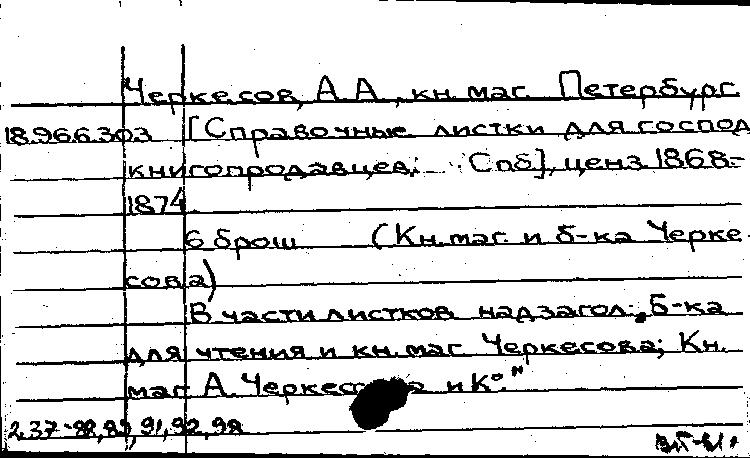 Черкесов, А. А., кн. маг. Петербург.
18.966.303 [Справочные листки для господ
книгопродавцев. Спб], ценз. 1868-
1874.
6 брош. (Кн. маг. и б-ка Черке
сова)
В части листков надзагол.: „Б-ка
для чтения и кн. маг. Черкесова; Кн.
маг. А. Черкесова и К°."